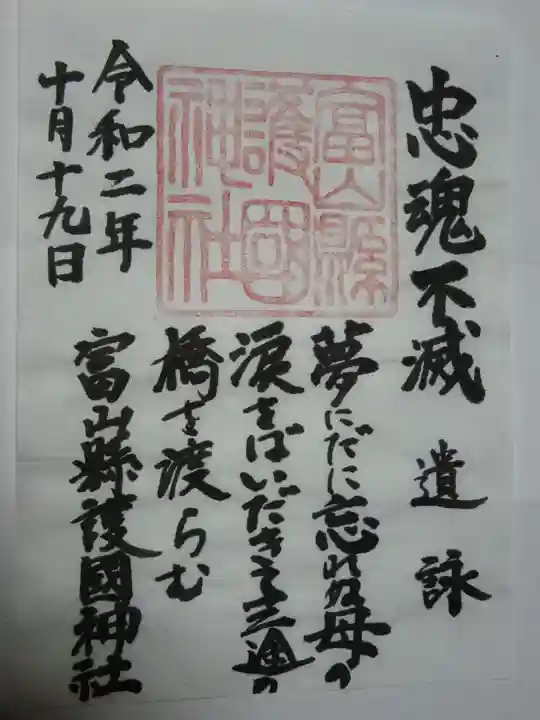 忠魂不滅 遺詠
夢にだに忘れぬ母の
涙をばいだきて三途の
橋を渡らむ
富山縣護國神社
令和二年
十月十九日
富山縣
護國
神社